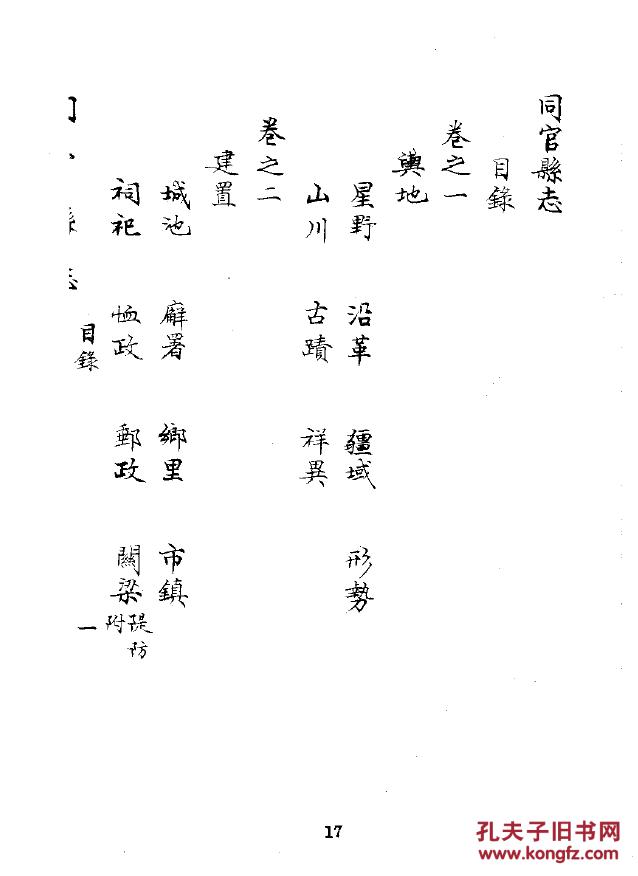 同官縣志
目錄
卷之一
輿地
星野 沿革 疆域 形勢
山川 古蹟 祥異
卷之二
建置
城池 廨署 鄉里 市鎮
祠祀 恤政 郵政 關梁 堤防附
目錄 一
17
孔夫子旧书网
www.kongfz.com